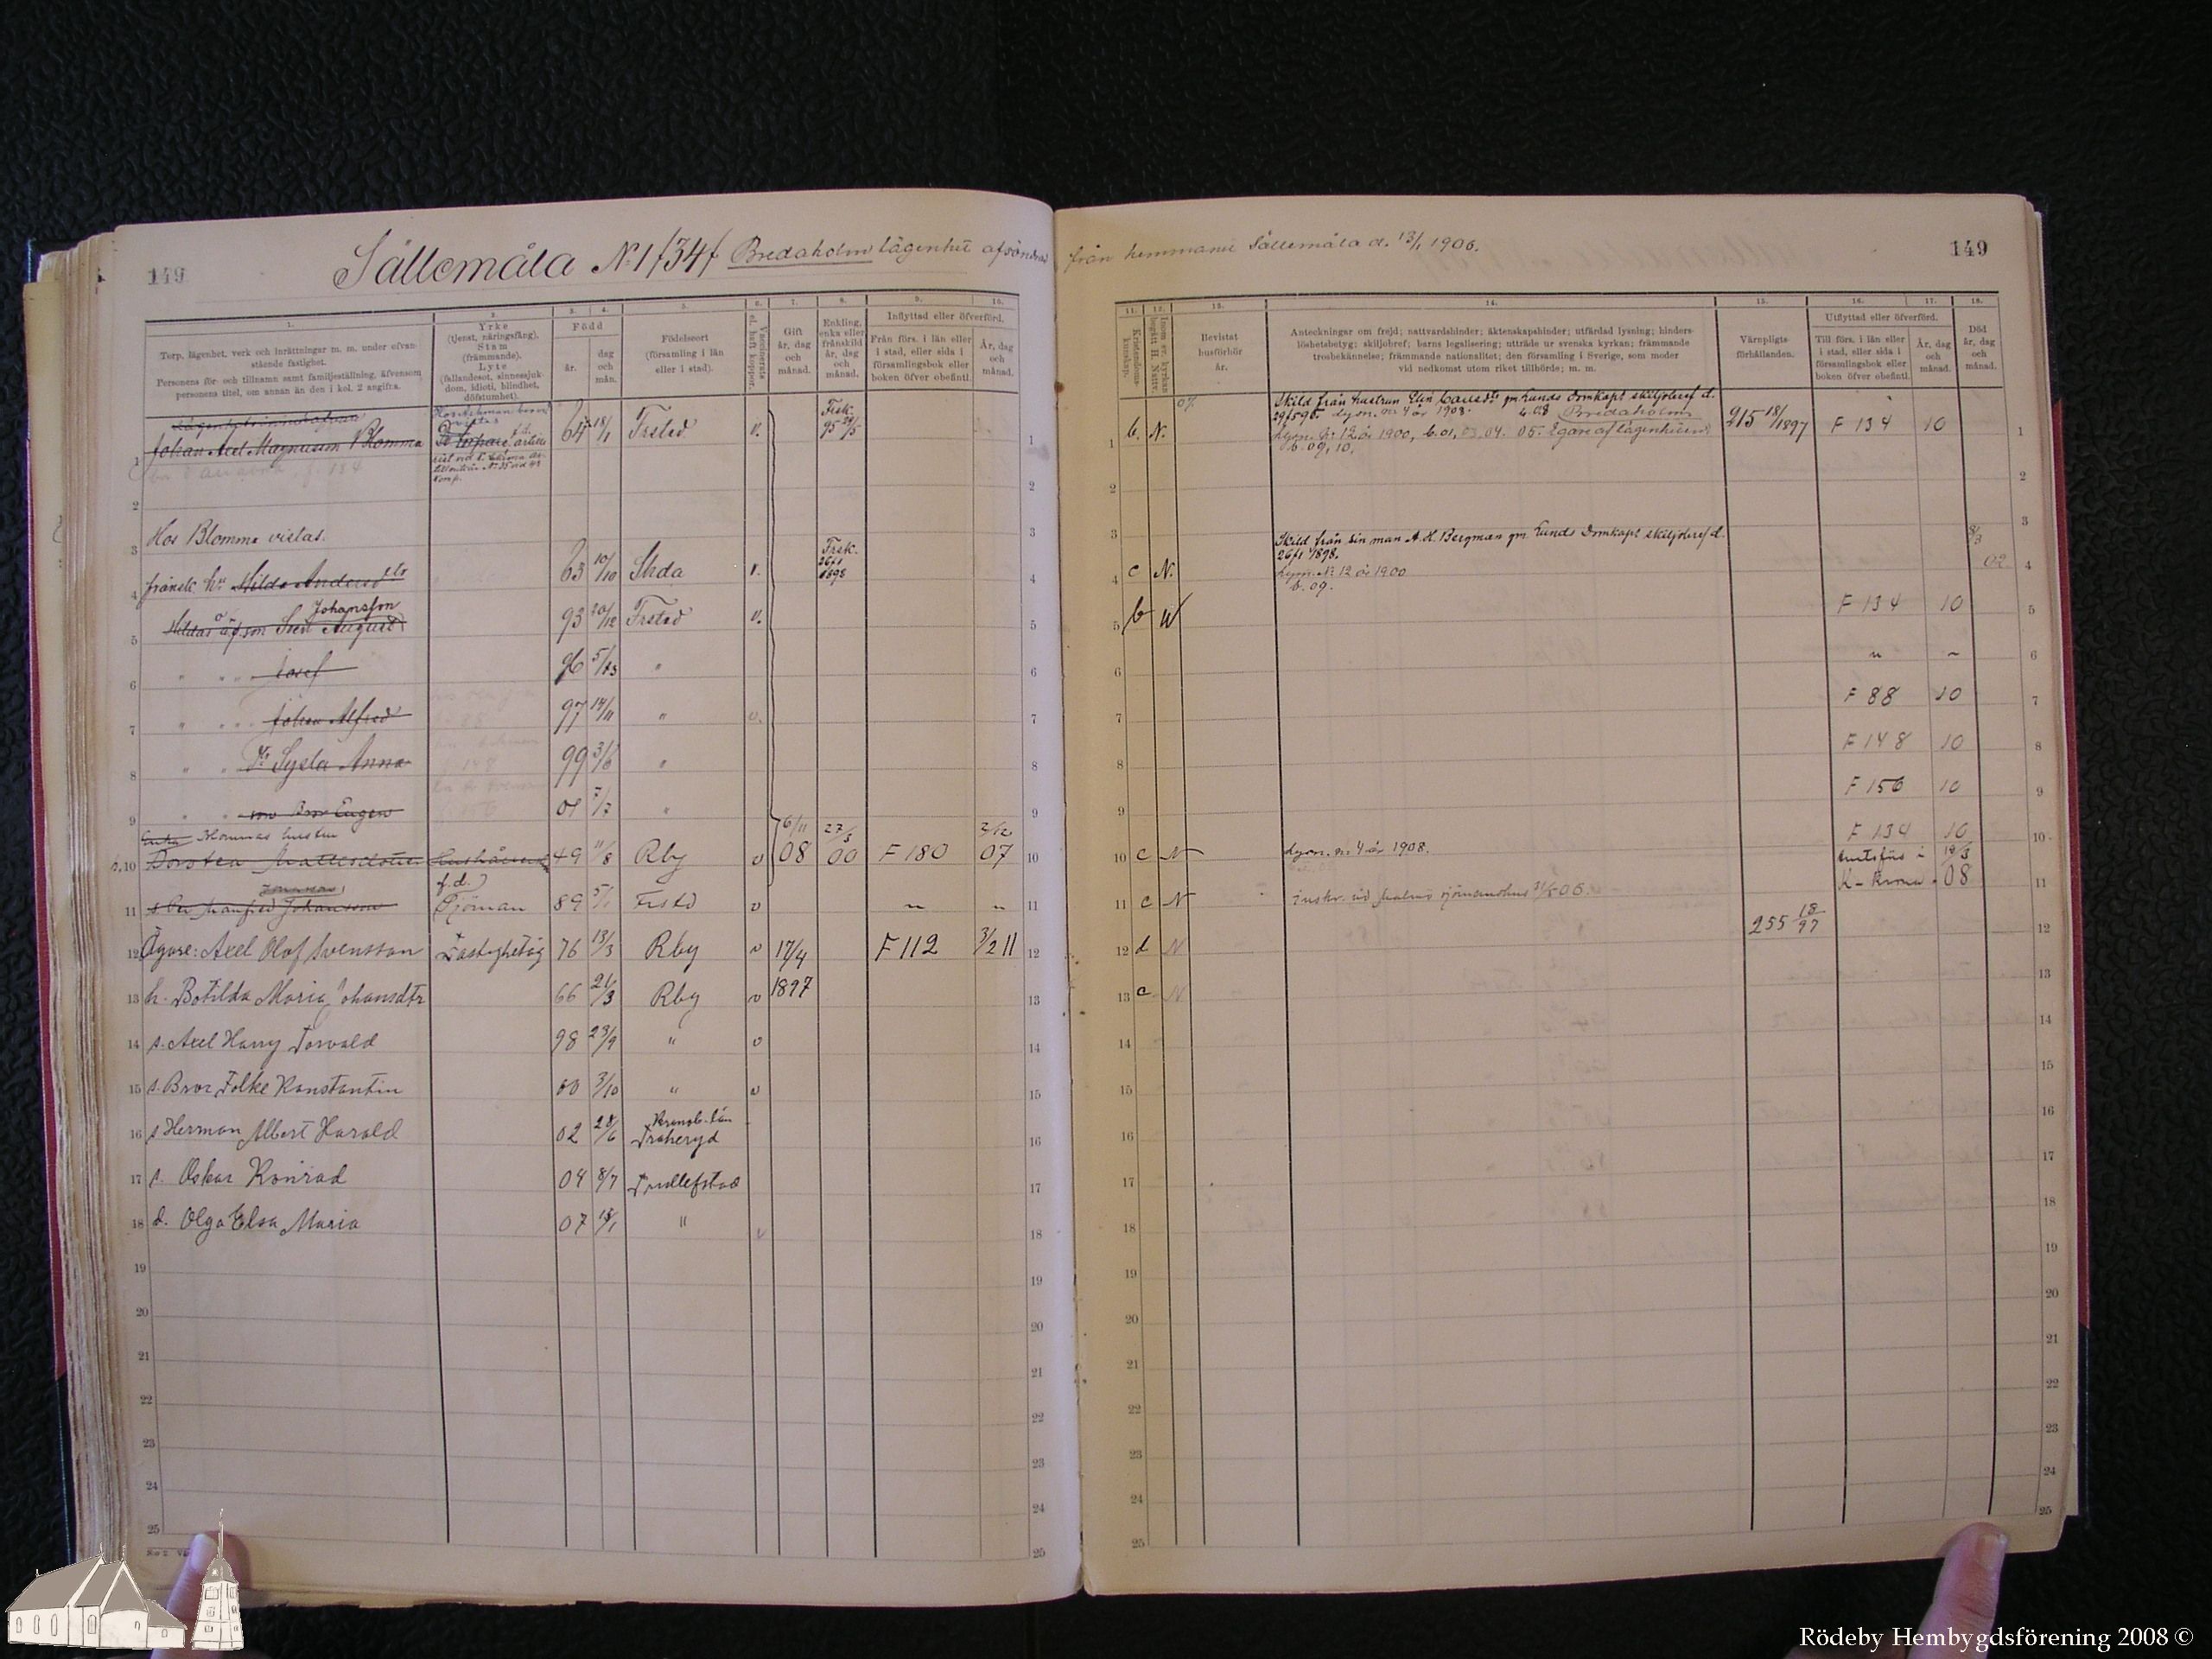 149
Sällemåla No 1/34f Bredaholm lägenhet afsöndrad
från hemmanet Sällemåla d. 13/1 1906.
149
1.
2.
3.
4.
5.
6.
7.
8.
9.
10.
Torp, lägenhet, verk och inrättningar m. m. under ofvan-
stående fastighet.
Personens för- och tillnamn samt familjeställning, äfvensom
personens titel, om annan än den i kol. 2 angifra.
Yrke
(tjenst, näringsfång),
Stam
(främmande).
Lyte
(fallandesot, sinnessjuk-
dom, idioti, blindhet,
döfstumhet).
Född
år.
dag
och
mån.
Födelseort
(församling i län
eller i stad).
Vaccinerats
el. haft koppor.
Gift
år, dag
och
månad.
Enkling,
enka eller
frånskild
år, dag
och
månad.
Inflyttad eller öfverförd.
Från förs. i län eller
i stad, eller sida i
församlingsbok eller
boken öfver obefintl.
År, dag
och
månad.
11.
12.
13.
14.
15.
16.
17.
18.
Kristendoms-
kunskap.
Bevistat
husförhör
år.
Anteckningar om frejd; nattvardshinder; äktenskapshinder; utfärdad lysning; hinders-
löshetsbetyg; skiljobref; barns legalisering; utträde ur svenska kyrkan; främmande
trosbekännelse; främmande nationalitet; den församling i Sverige, som moder
vid nedkomst utom riket tillhörde; m. m.
Värnpligts-
förhållanden.
Utflyttad eller öfverförd.
Till förs. i län eller
i stad, eller sida i
församlingsbok eller
boken öfver obefintl.
År, dag
och
månad.
Död
år, dag
och
månad.
1 Johan Axel Magnusson Blomma 64 18/1 Frsted v. Frsk. 95 29/5
07
b. N. Skild från hustrun Elin Carlsdtr gm Lunds Domkapt skiljobref d.
29/5 95. lysn. No 4 år 1908. b. 08 Bredaholm
Lysn. No 12 år 1900, b. 01, 03. 04. 05. Egare af lägenheten
b. 09, 10.
215 18/1897 F 134 10
2
3 Hos Blomma vistas.
4 frånsk. hu Hilda Andersdtr 63 10/10 Skda v. Frsk. 26/1 1898
c N. Skild från sin man A. H. Bergman gm Lunds Domkapt skiljobref d.
26/1 1898.
Lysn. No 12 år 1900
b. 09.
8/3 02
5 Hildas oä. f. son Sven August Johansson 93 20/12 Frsted v. b F 134 10
6 " " Josef 96 5/ "
7 " " Johan Alfred 97 14/11 " v. F 88 10
8 " " Dr Sysla Anna 99 3/6 " F 148 10
9 " " son Bror Eugen 01 7/7 " F 156 10
Enka Blommas hustru
10 49 11/8 Rby v 6/11 08 27/5 00 F 180 2/12 07 c N lysn. No 4 år 1908. F 134 10
f. d.
11 s. Per Manfred Johansson Sjöman 89 5/1 Frstd v " " c N inskr. vid Malmö sjömanshus 31/5 06. K-krona 19/3 08
12 Ägare: Axel Olof Svensson 76 13/3 Rby v 17/4 F 112 3/2 11 d N 255 18/97
13 h. Botilda Maria Johansdtr 66 21/3 Rby v 1897 c N
14 s. Axel Harry Torvald 98 23/9 " v
15 s. Bror Folke Konstantin 00 3/10 " v
16 s Herman Albert Harald 02 28/6 Kronob. län Traheryd
17 s. Oskar Konrad 04 8/7
18 d. Olga Elsa Maria 07 18/1 " v
19
20
21
22
23
24
25
Rödeby Hembygdsförening 2008 ©